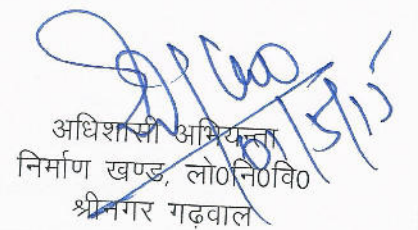 अधिशासी अभियन्ता
निर्माण खण्ड, लो०नि०वि०
श्रीनगर गढ़वाल